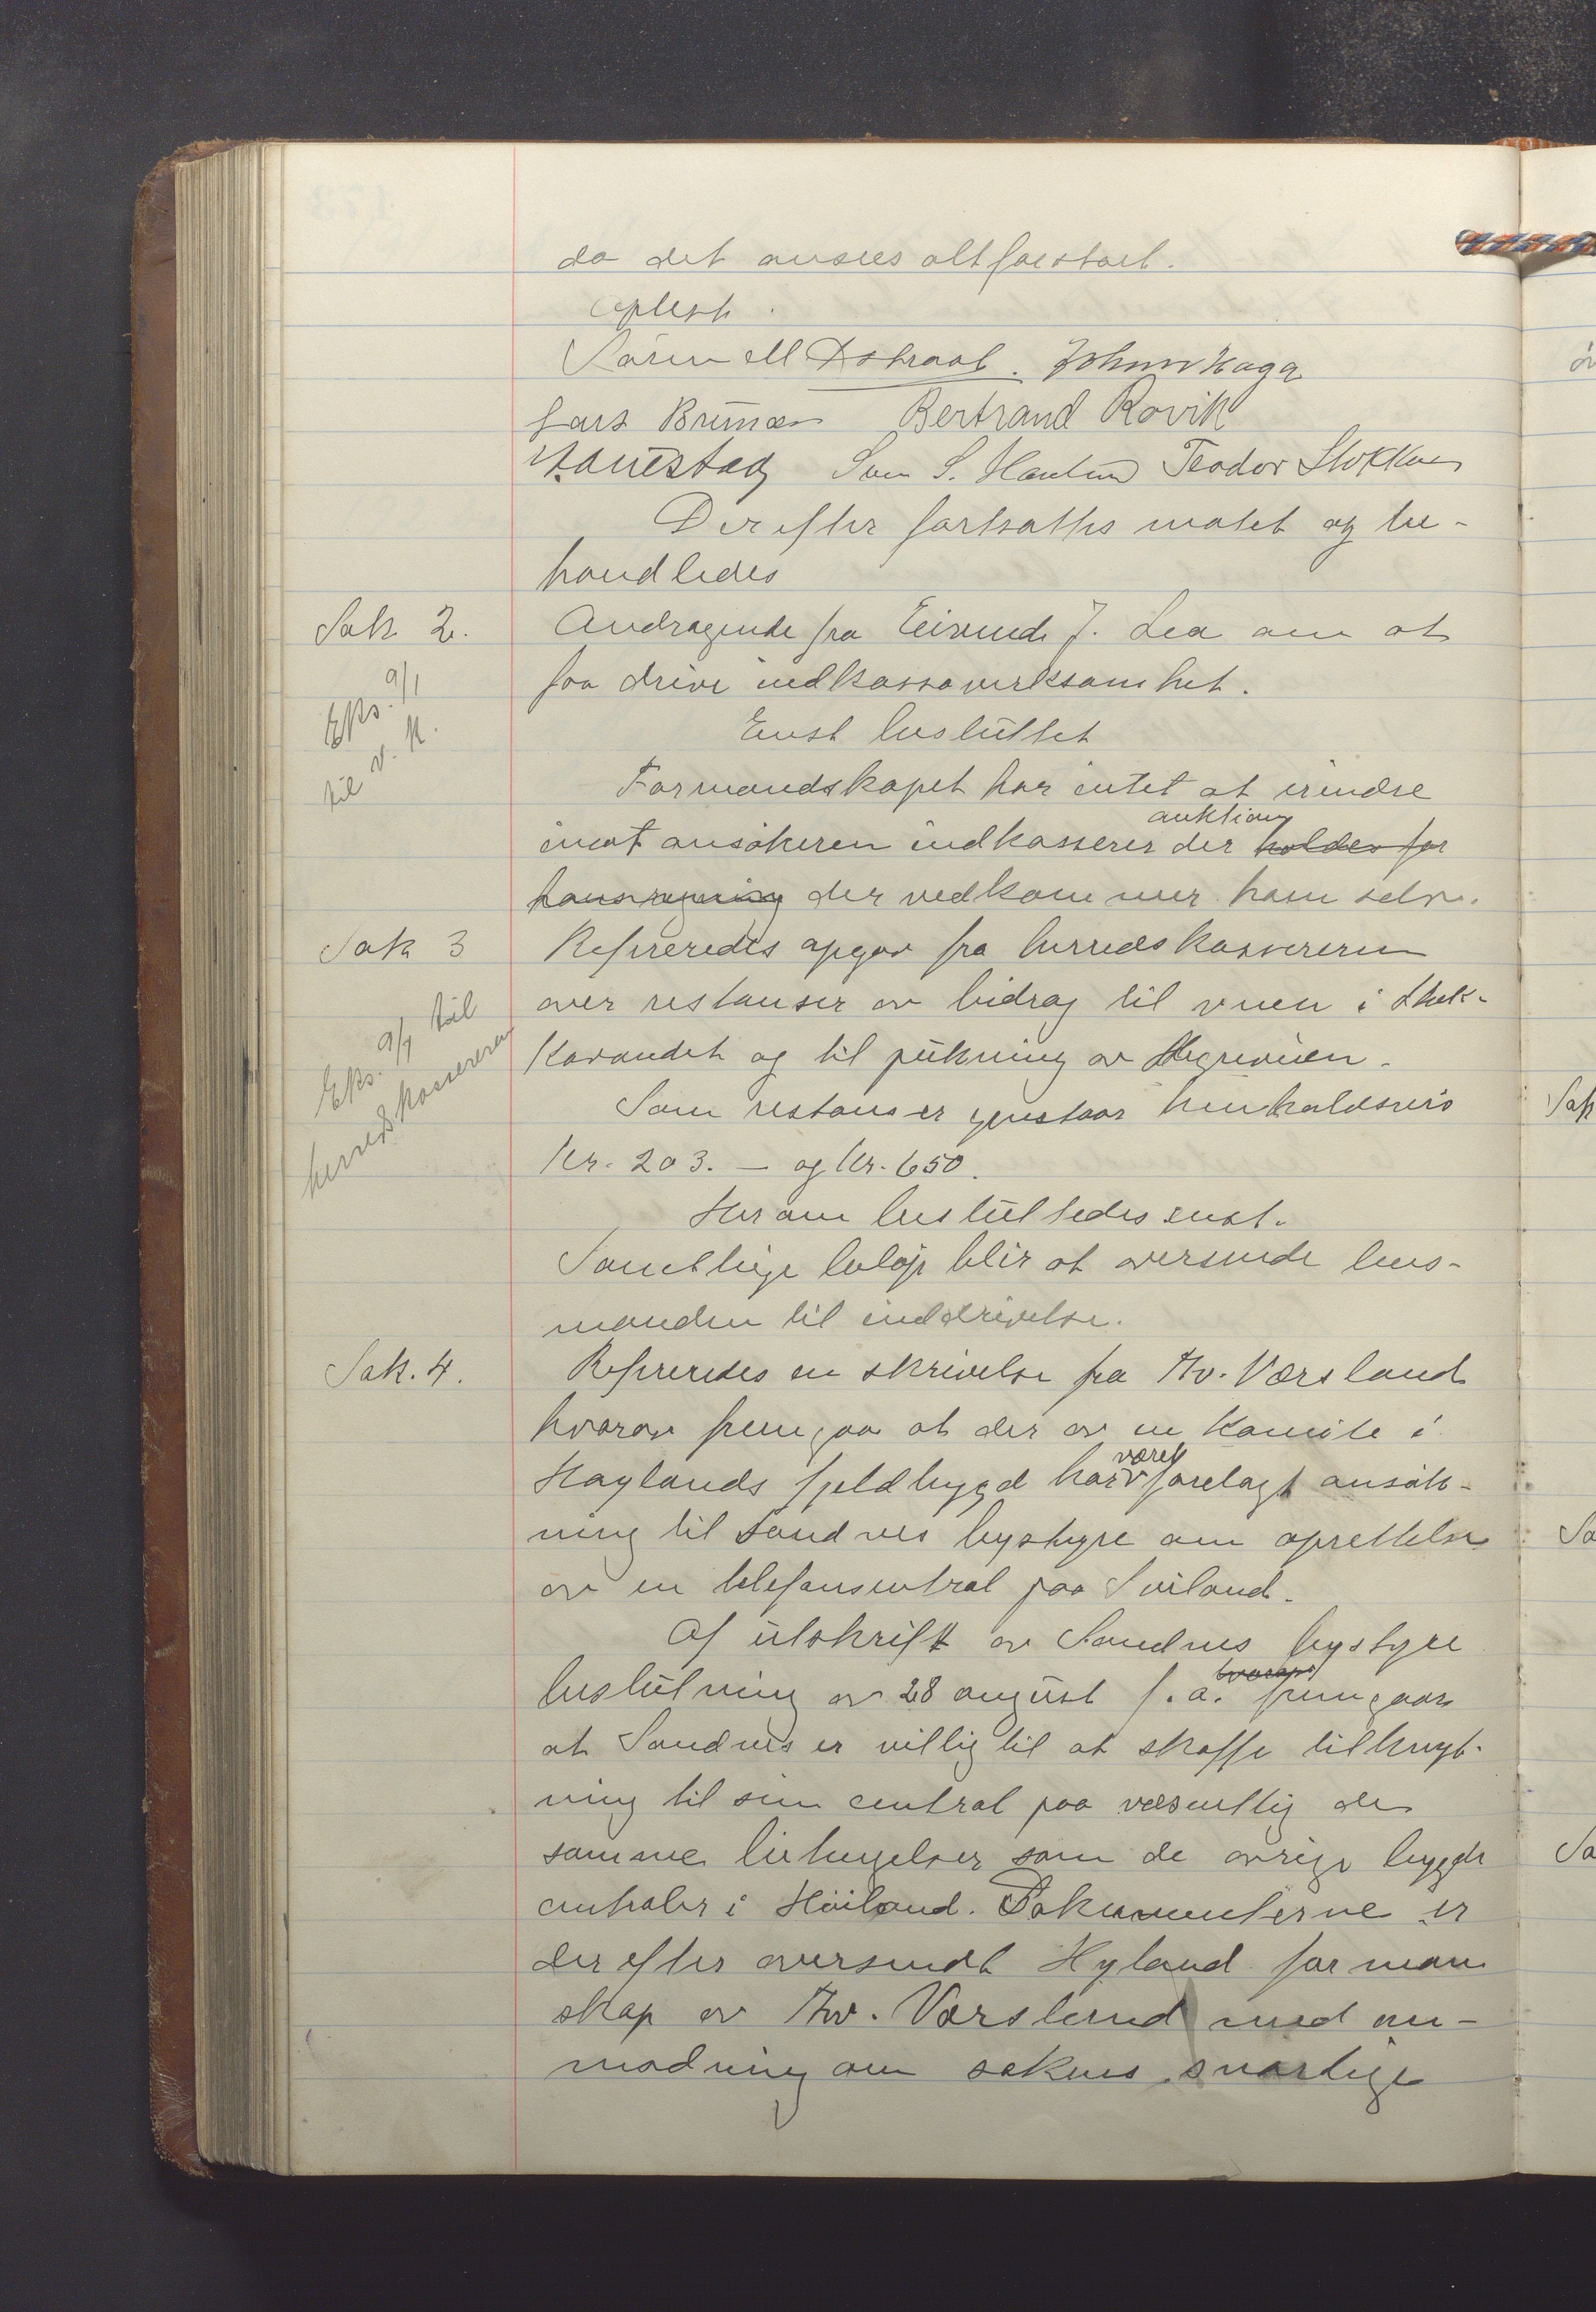 da det ansees altforstort.
Oplest.
Sören M Østraat. John Haga
Lars Brunæs Bertrand Rovik
Hanestad Sven S. Hauten Teodor Stokka
Derefter fortsattes møtet og be-
handledes
Sak 2. Andragende fra Eivind J. Lea om at
faa drive indkassovirksomhet.
Eks. 9/1
til v. k.
Enst besluttet
Formandskapet har intet at erindre
imot ansökeren indkasserer der holdes for auktion
hans regning der vedkommer ham selv.
Sak 3 Refereredes opgav fra herredskassereren
over restanser av bidrag til veien i Stok-
kavandet og til pukning av Hegreveien.
Eks. 9/1 til
herredskassereren
Som restanser gjenstaar henholdsvis
Kr. 203.- og Kr. 650.
Herom besluttedes enst.
Samtlige beløp blir at oversende lens-
manden til inddrivelse.
Sak. 4. Refereredes en skrivelse fra Thv. Vårsland
hvorav fremgaa at der av en komite i
Høylands fjeldbygd har været forelagt ansøk-
ning til Sandnes bystyre om oprettelse
av en telefonsentral paa Sviland.
Af utskrift av Sandnes bystyre
beslutning av 28 august f.a. hvorav fremgaar
at Sandnes er villig til at skaffe tilknyt-
ning til sin central paa væsentlig de
samme betingelser som de øvrige bygde
centraler i Høiland. Dokumenterne er
derefter oversendt Hyland forman
skap av Thv. Vårsland med an-
modning om sakens snarlige